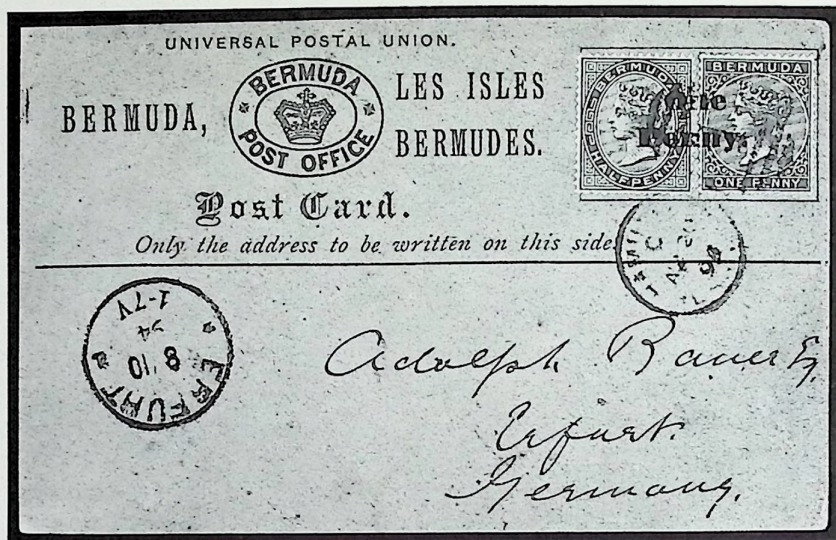 UNIVERSAL POSTAL UNION.
BERMUDA,
BERMUDA
POST OFFICE
LES ISLES
BERMUDES.
BERMUDA
HALFPENNY
BERMUDA
ONE PENNY
One
Penny.
Post Card.
Only the address to be written on this side.
94
ERFURT
8 10
94
1-7V
Adolph Bauer Esq
Erfurt.
Germany.